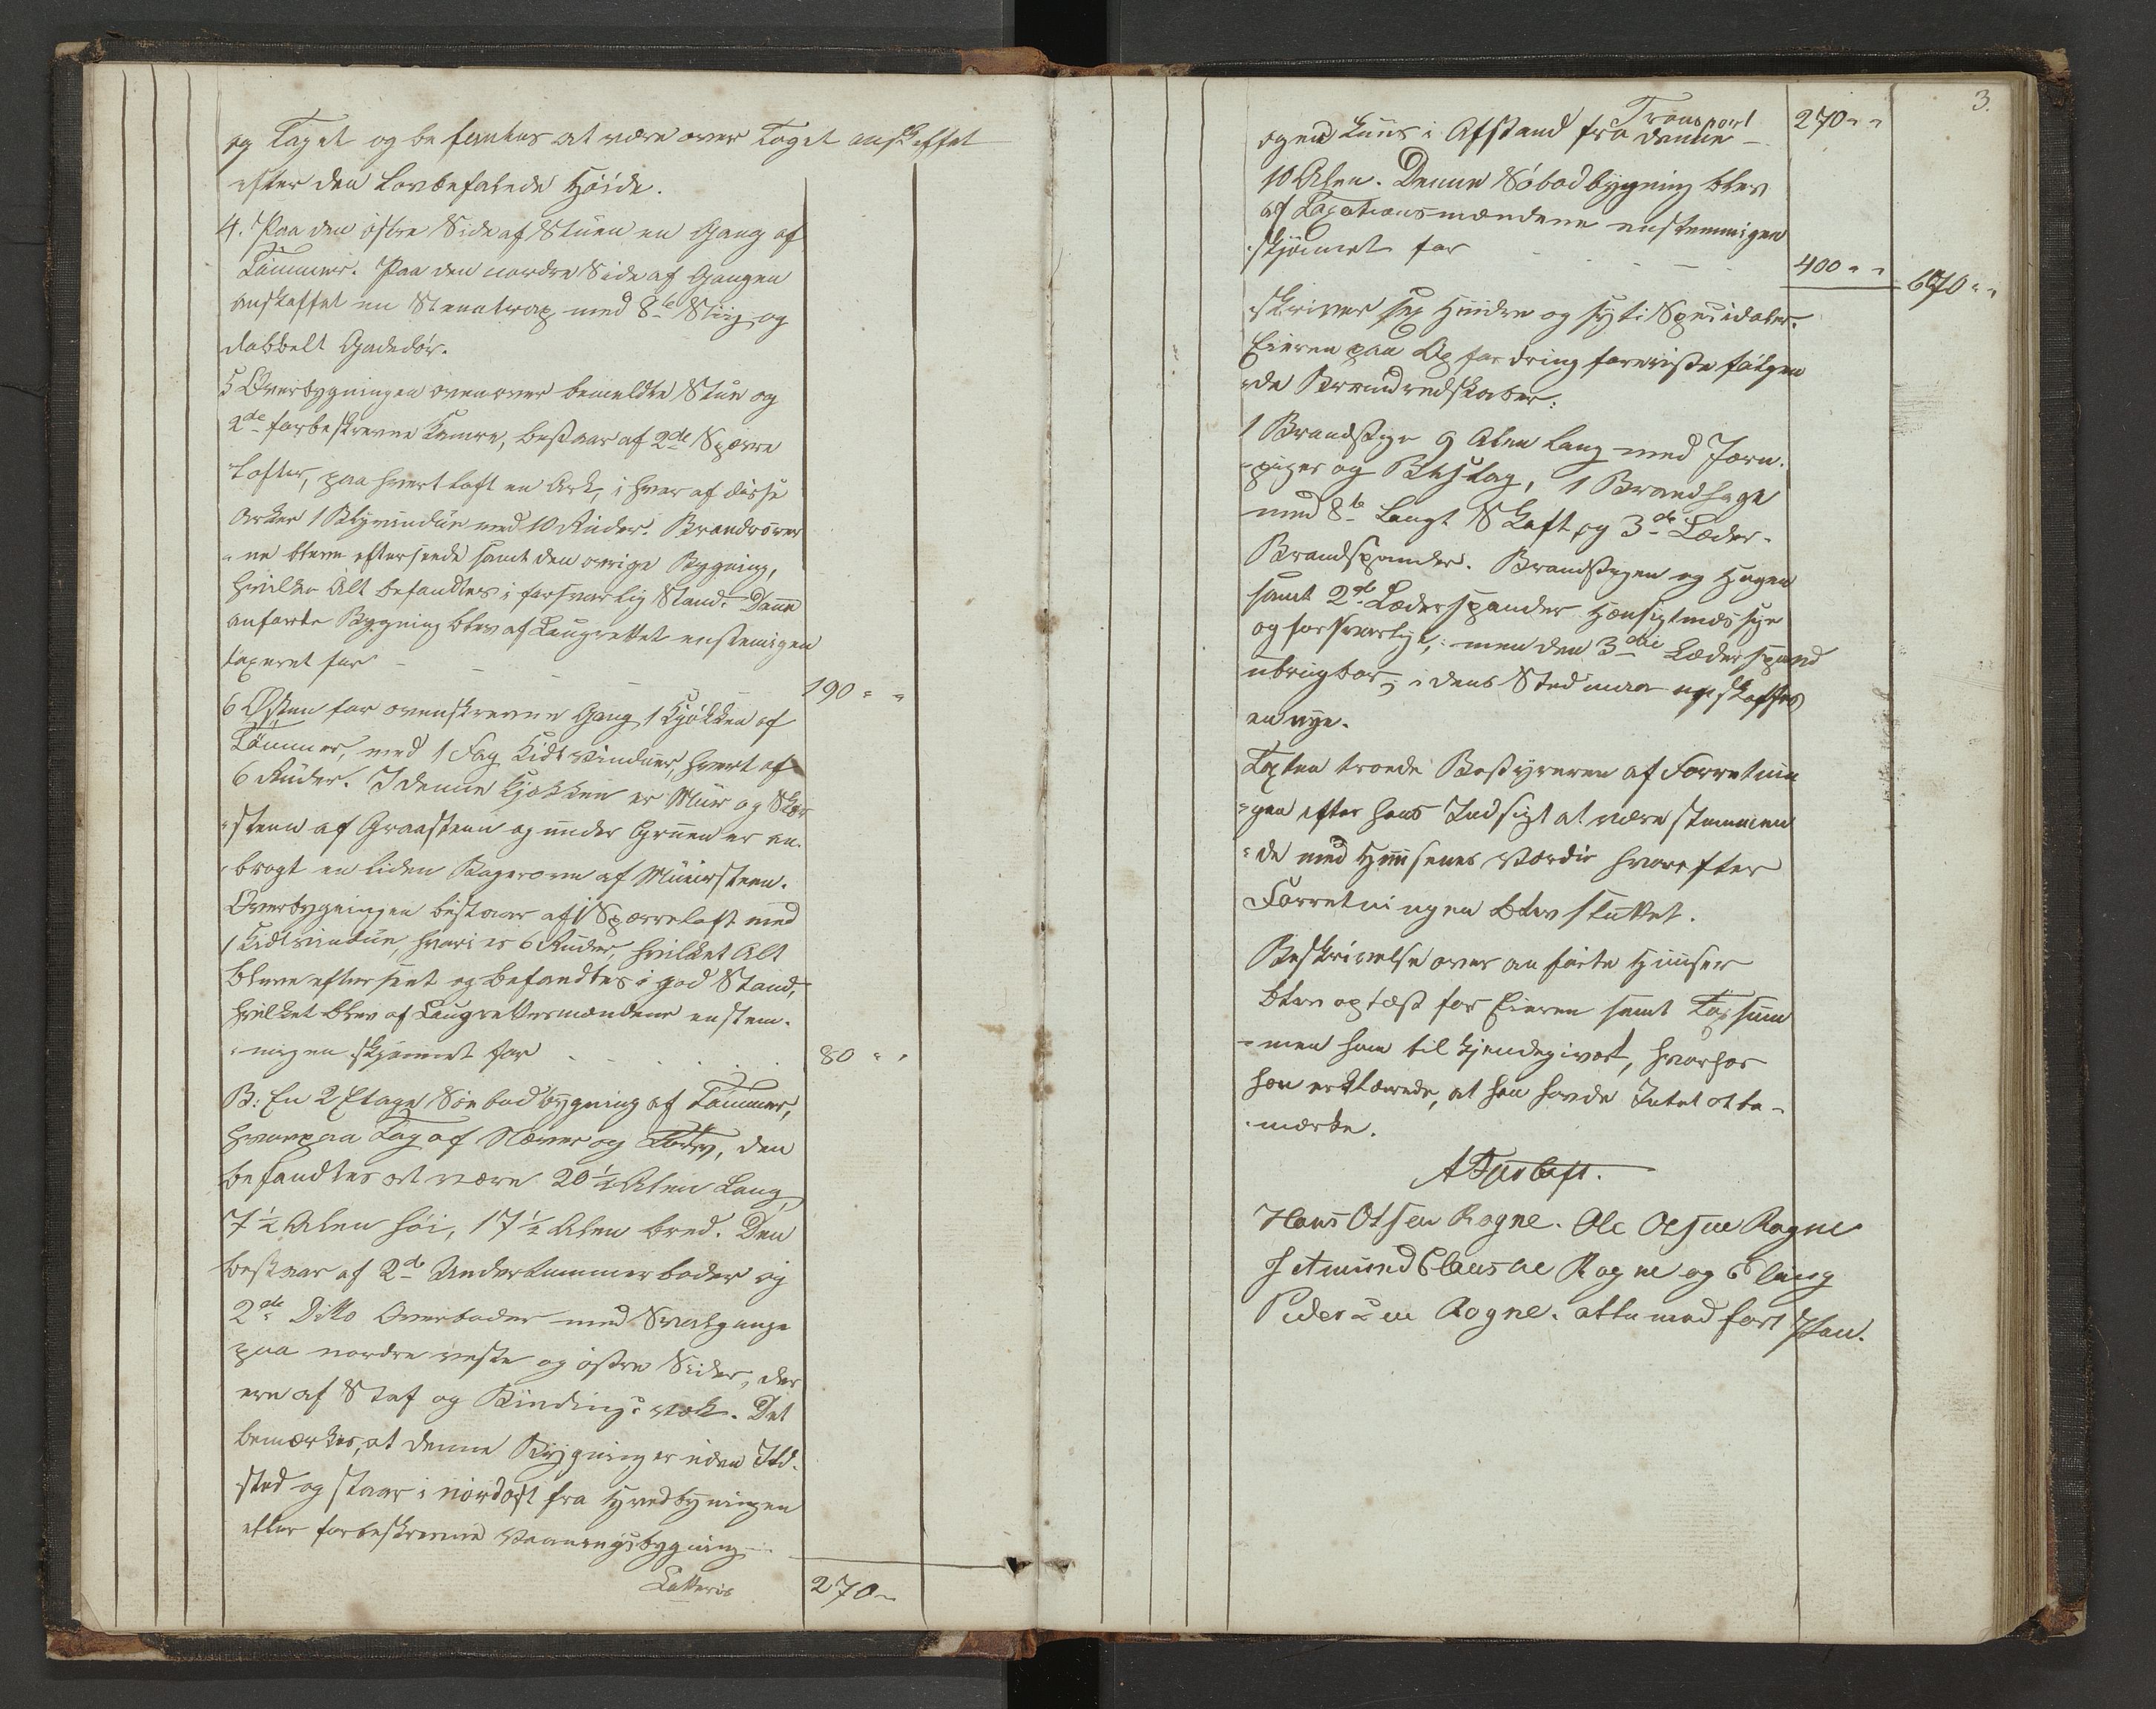 og Taget og befantes at være over Taget anskaffet
efter den Lovbefalede Høide.
4. Paa den østre Side af Stuen en Gang af
Tømmer. Paa den nordre Side af Gangen
anskaffet en Steentrap med 8te Stiig og
dobbelt Gadedør.
5 Overbygningen ovenover bemeldte Stue og
2de forbeskrevne Kamre, bestaar af 2de Sperre
Lofter, paa hvert Loft en Ark, i hver af disse
Arker 1 Blyvindue med 10 Ruder. Brandrører
-ne bleve efterseede samt den øvrige Bygning,
hvilke Alt befandtes i forsvarlig Stand. Denne
anførte Bygning blev af Laugrettet enstemigen
taxeret for - - - 190 " "
6 Østen for ovenskrevne Gang 1 Kjøkken af
Tømmer, med 1 Fag Kidtvinduer, hvert af
6 Ruder. I denne Kjøkken er Muur og Skor
-steen af Graasteen og under Gruen er an-
-bragt en liden Bagerovn af Muursteen.
Overbygningen bestaar af 1 Sperreloft med
1 Kidtvindue, hvori er 6 Ruder, hvilket Alt
bleve efterseet og befandtes i god Stand,
hvilket blev af Laugrettesmændene enstem-
-migen skjønnet for 80 " "
B: En 2 Etage Søebodbygning af Tømmer,
hvorpaa Tag af Næver og Torv, den
befandtes at være 20 1/2 Alen Lang,
7 1/2 Alen høi, 17 1/2 Alen bred. Den
bestaar af 2de Undertømmerboder og
2de Ditto Overboder med Svalgange
paa nordre vestre og østre Sider, der
ere af Staf og Bindings værk. Det
bemærkes, at denne Bygning er uden Ild-
sted og staar i nordost fra Hvedbygningen
eller forbeskrevne Vaaningsbygning
Latteris 270 "
3.
Transport 270 " "
og en Huus i Afstand fra denne -
10 Alen. Denne Søbodbygning blev
af Taxationsmændene enstemmigen
skjønnet for - - - 400 " " 670 " "
skriver sex Hundre og syti Speciedaler.
Eieren paa Opfordring foreviste følgen
-de Brandredskaber:
1 Brandstige 9 Alen lang med Jern-
-piger og Beslag, 1 Brandhage
med 8te Langt Skaft og 3de Læder-
Brandspander. Brandstigen og Hagen
samt 2de Læderspander Hensigtmæssige
og forsvarlige, men den 3die Læderspand
ubrugbar; i dens Sted maa anskaffes
en nye.
Taxten troede Bestyreren af Forretnin
-gen efter hans Indsigt at være stemmen
-de med Huusenes Værdie hvorefter
Forretningen blev sluttet.
Beskrivelse over anførte Huuser
blev oplæst for Eieren samt Taxsum
-men ham tilkjendegivet, hvorhos
han erklærede, at han havde Intet at be-
-mærke.
Hans Olsen Rogne. Ole Olsen Rogne
Rogne og Elling
Pedersen Rogne. alle med ført Pen.